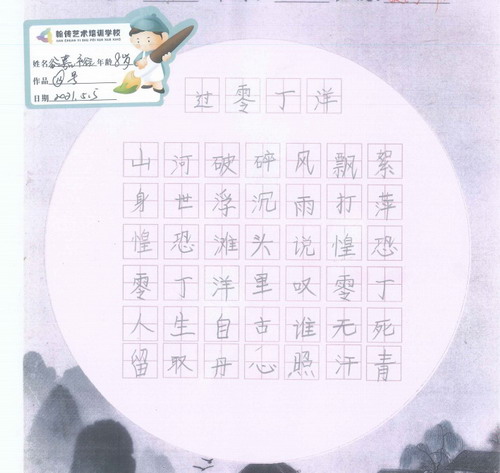 翰传艺术培训学校
姓名 年龄 8岁
作品
日期 2021.5.5
过零丁洋
山河破碎风飘絮
身世浮沉雨打萍
惶恐滩头说惶恐
零丁洋里叹零丁
人生自古谁无死
留取丹心照汗青